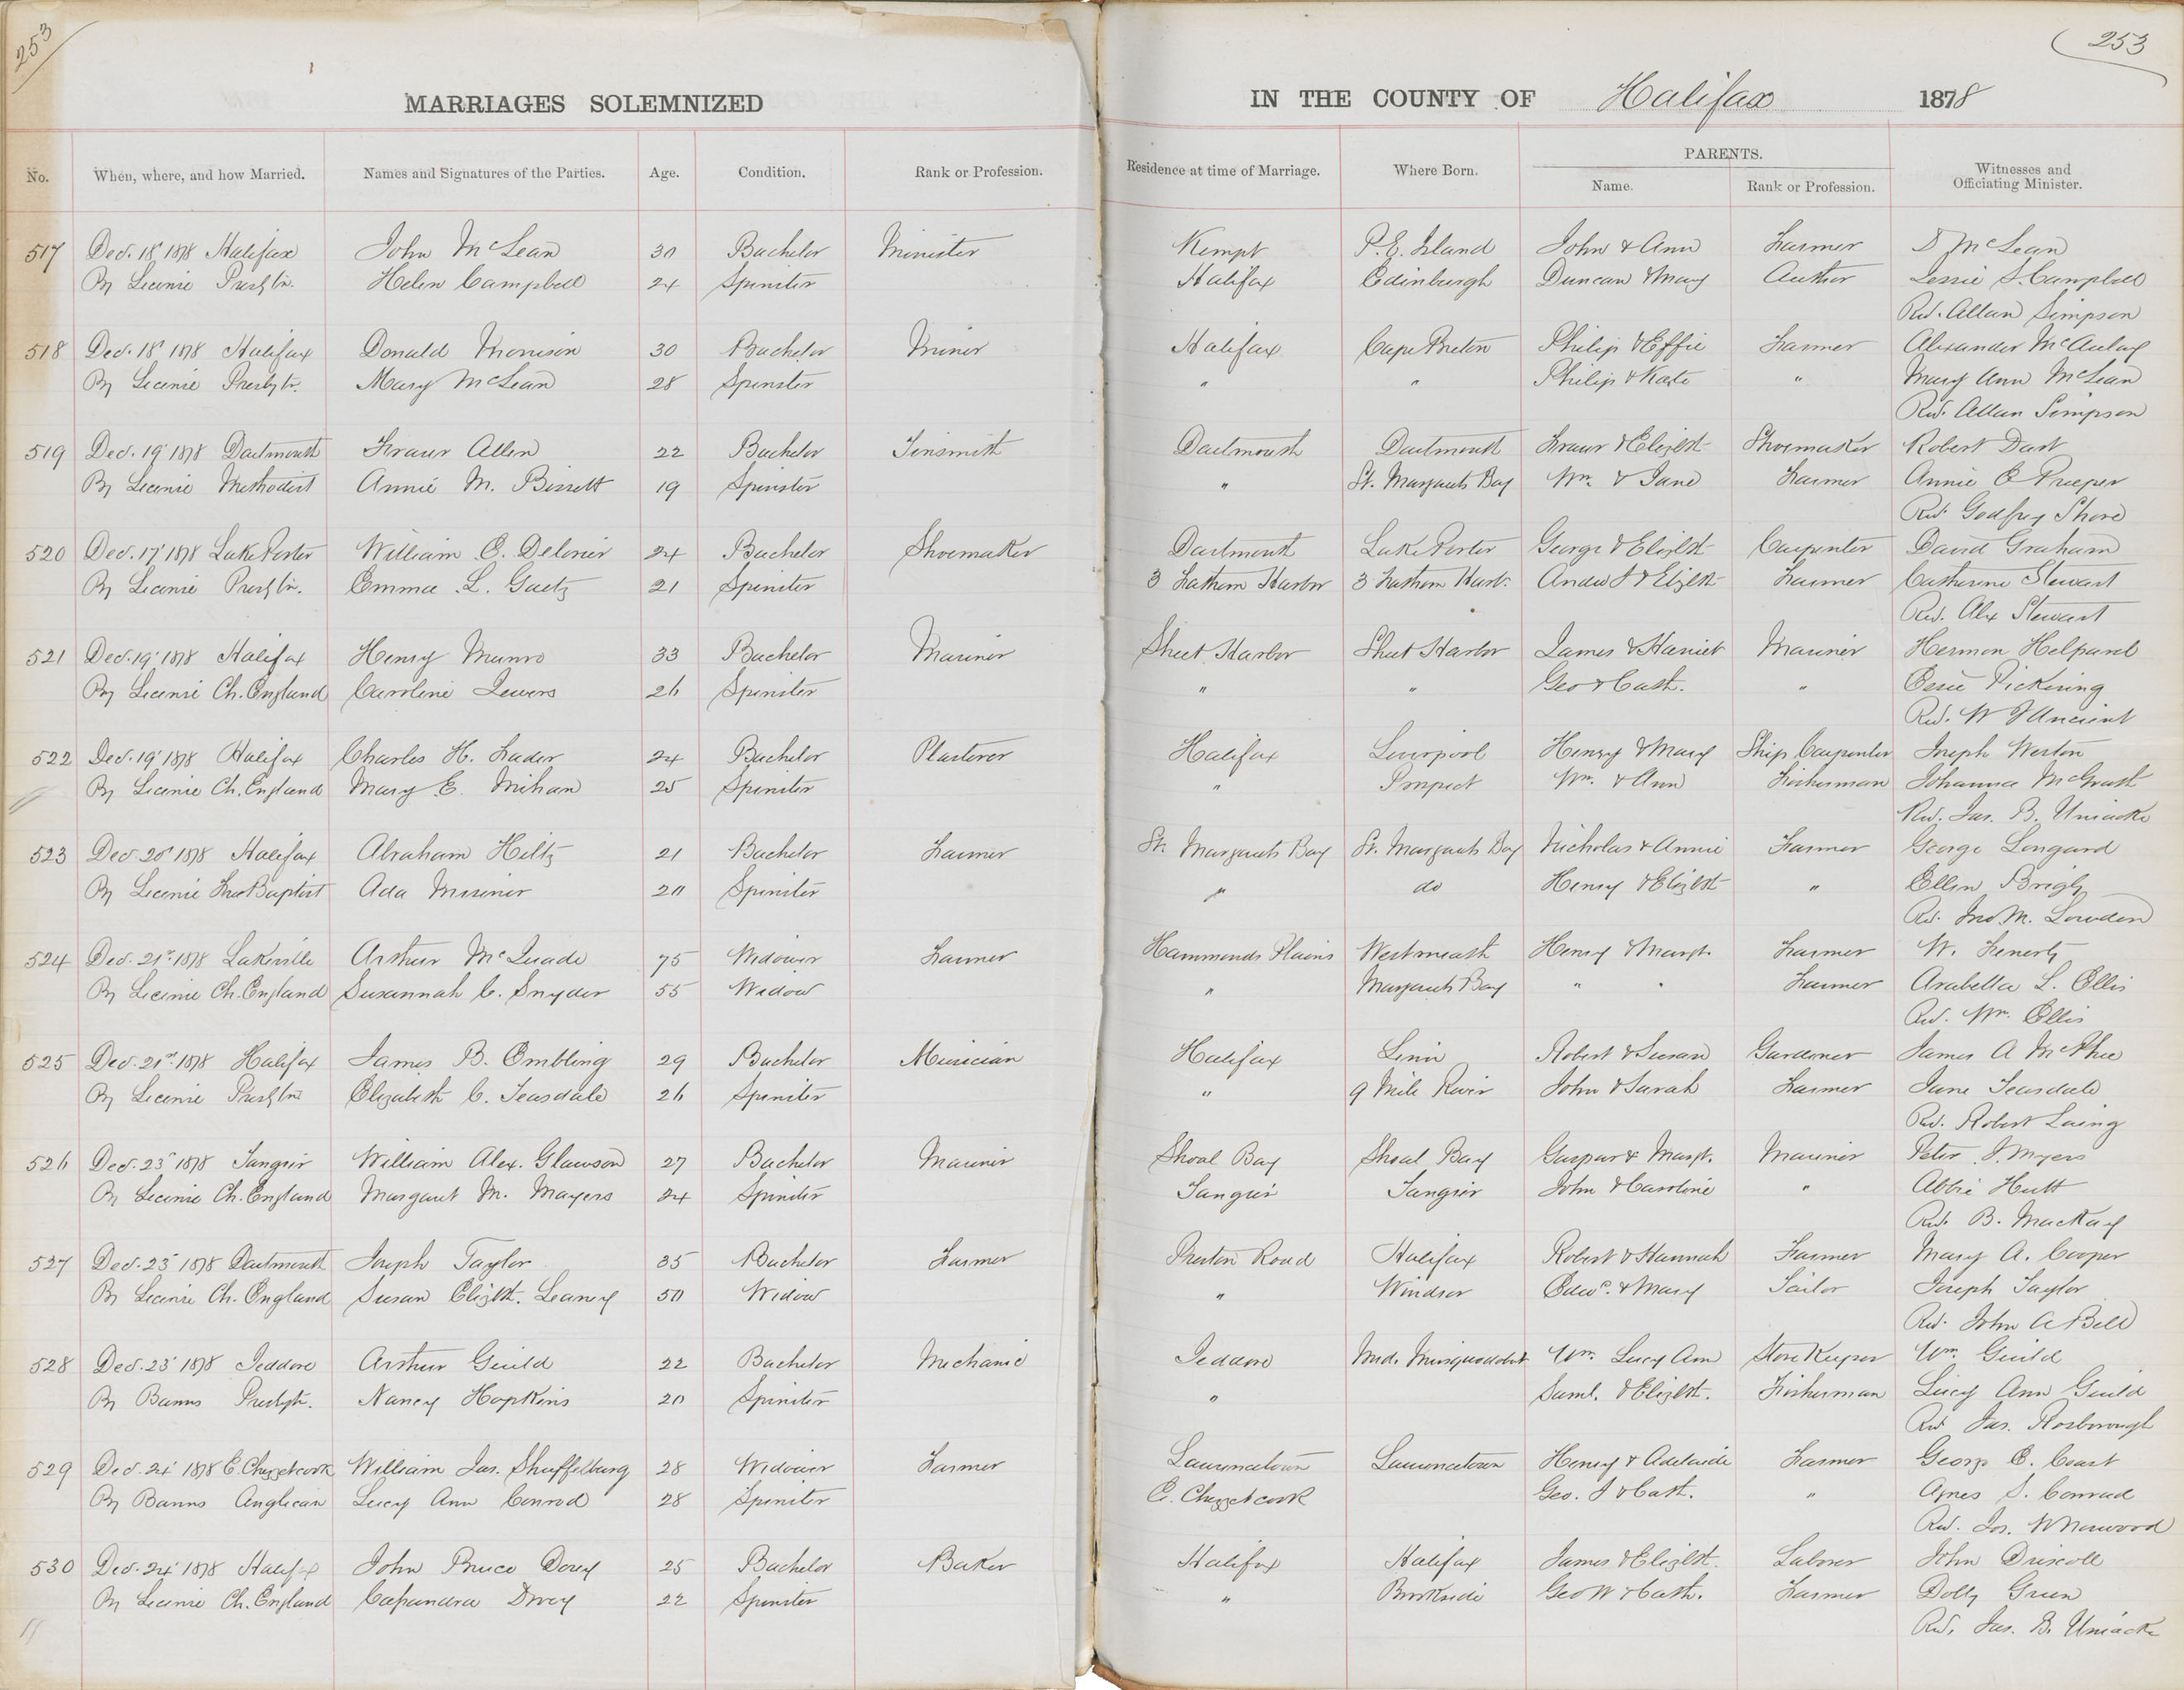 253
253
MARRIAGES SOLEMNIZED IN THE COUNTY OF Halifax 1878
No. When, where, and how Married. Names and Signatures of the Parties. Age. Condition. Rank or Profession. Residence at time of Marriage. Where Born. PARENTS. Name. Rank or Profession. Witnesses and Officiating Minister.
517 Dec. 18 1878 Halifax John McLean 30 Bachelor Minister Kempt P.E. Island John & Ann Farmer D McLean
By Licence Presbtn. Helen Campbell 24 Spinster Halifax Edinburgh Duncan & Mary Author Jessie S. Campbell
Rev. Allan Simpson
518 Dec. 18 1878 Halifax Donald Morrison 30 Bachelor Miner Halifax Cape Breton Philip & Effie Farmer Alexander McAulay
By Licence Presbytn. Mary McLean 28 Spinster " " Philip & Kate " Mary Ann McLean
Rev. Allan Simpson
519 Dec. 19 1878 Dartmouth Allen 22 Bachelor Tinsmith Dartmouth Dartmouth & Elizbth Shoemaker Robert Dart
By Licence Methodist Annie M. Bissett 19 Spinster " St. Margarets Bay Wm. & Jane Farmer Annie E Preeper
Rev. Godfrey Shore
520 Dec. 17 1878 Lake Porter William E. Delonier 24 Bachelor Shoemaker Dartmouth Lake Porter George & Elizbth Carpenter David Graham
By Licence Presbtn. Emma L. Gaetz 21 Spinster 3 Fathom Harbor 3 Fathom Harb. Andw J & Elizbth Farmer Catherine Stewart
Rev. Alex Stewart
521 Dec. 19 1878 Halifax Henry Munro 33 Bachelor Mariner Sheet Harbor Sheet Harbor James & Harriet Mariner Hermon Helpard
By Licence Ch. England Caroline Jewers 26 Spinster " " Geo & Cath. " Essie Pickering
Rev. W J Ancient
522 Dec. 19 1878 Halifax Charles H. Fader 24 Bachelor Plasterer Halifax Liverpool Henry & Mary Ship Carpenter Joseph Weston
By Licence Ch. England Mary E. Mihan 25 Spinster " Prospect Wm. & Ann Fisherman Johanna McGrath
Rev. Jas. B. Uniacke
523 Dec 20 1878 Halifax Abraham Hiltz 21 Bachelor Farmer St. Margarets Bay St. Margarets Bay Nicholas & Annie Farmer George Longard
By Licence Free Baptist Ada Mariner 20 Spinster " do Henry & Elizbth " Ellen
Rev. Jno M. Lowden
524 Dec. 21st 1878 Lakeville Arthur McQuade 75 Widower Farmer Hammonds Plains Westmeath Henry & Margt. Farmer W. Fenerty
By Licence Ch. England Susannah C. Snyder 55 Widow " Margarets Bay " " Farmer Arabella L. Ellis
Rev. Wm. Ellis
525 Dec. 21st 1878 Halifax James B. Embling 29 Bachelor Musician Halifax Robert & Susan Gardener James A McPhee
By Licence Presbtn Elizabeth C. Teasdale 26 Spinster " 9 Mile River John & Sarah Farmer Jane Teasdale
Rev. Robert Laing
526 Dec. 23 1878 Tangier William Alex. Glawson 27 Bachelor Mariner Shoal Bay Shoal Bay Gaspar & Margt. Mariner Peter J. Myers
By Licence Ch. England Margaret M. Mayers 24 Spinster Tangier Tangier John & Caroline " Abbie Hutt
Rev. B. MacKay
527 Dec. 23 1878 Dartmouth Joseph Taylor 35 Bachelor Farmer Preston Road Halifax Robert & Hannah Farmer Mary A. Cooper
By Licence Ch. England Susan Elizbth. Leaney 50 Widow " Windsor Edwd. & Mary Joseph Taylor
Rev. John A Bell
528 Dec. 23 1878 Jeddore Arthur Guild 22 Bachelor Mechanic Jeddore Mid. Musquodobt Wm. Lucy Ann Store Keeper Wm. Guild
By Banns Presbytn. Nancy Hopkins 20 Spinster " Saml. & Elizbth. Fisherman Lucy Ann Guild
Rev Jas. Rosborough
529 Dec. 24 1878 E. Chezzetcook William Jas. Shuffelburg 28 Widower Farmer Lawrencetown Lawrencetown Henry & Adelaide Farmer George E. Coast
By Banns Anglican Lucy Ann Conrod 28 Spinster E. Chezzetcook Geo. J & Cath. " Agnes S. Conrad
Rev. Jos. Norwood
530 Dec. 24 1878 Halifax John Bruce Dorey 25 Bachelor Baker Halifax Halifax James & Elizbth. Laborer John Driscoll
By Licence Ch. England Casandra Drey 22 Spinster " Brookside Geo W & Cath. Farmer Dolly Green
Rev. Jas. B. Uniacke